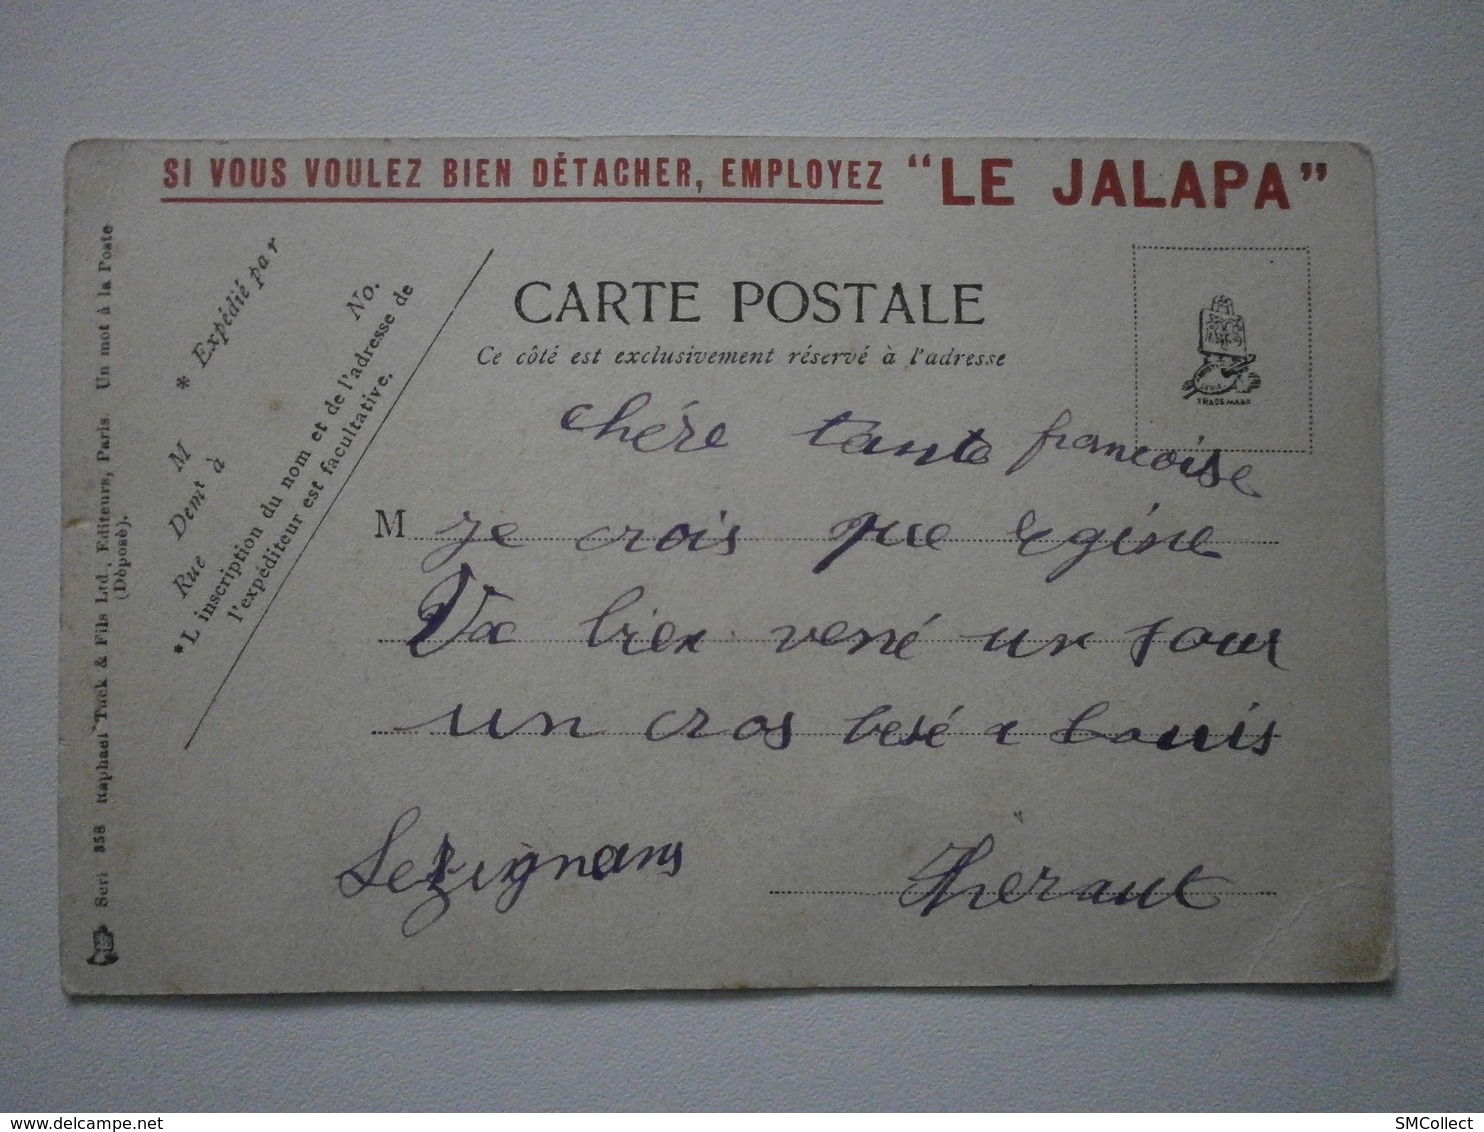 SI VOUS VOULEZ BIEN DÉTACHER, EMPLOYEZ "LE JALAPA"
CARTE POSTALE
Ce côté est exclusivement réservé à l'adresse
TRADE MARK
* Expédié par
No.
M
Demt à
Rue
*L inscription du nom et de l'adresse de
l'expéditeur est facultative.
Seri 358 Raphael Tuck & Fils Ltd., Editeurs, Paris Un mot à la Poste
(Déposé).
chére tante francoise
M je crois que regine
Va bien vené un jour
un cros besé a Louis
Lezignans
Hèraut
SMCollect